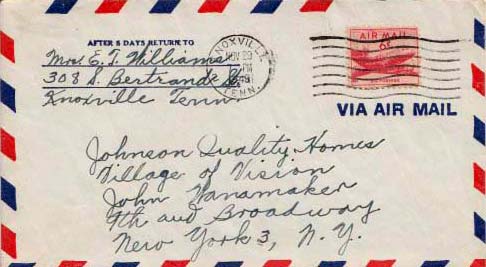 AFTER 5 DAYS RETURN TO
Mrs. E. T. Williams
308 S. Bertrand St.
Knoxville Tenn.
KNOXVILLE
NOV 29
PM
TENN.
AIR MAIL
6¢
VIA AIR MAIL
Johnson Quality Homes
Village of Vision
John Wanamaker
9th and Broadway
New York 3, N.Y.